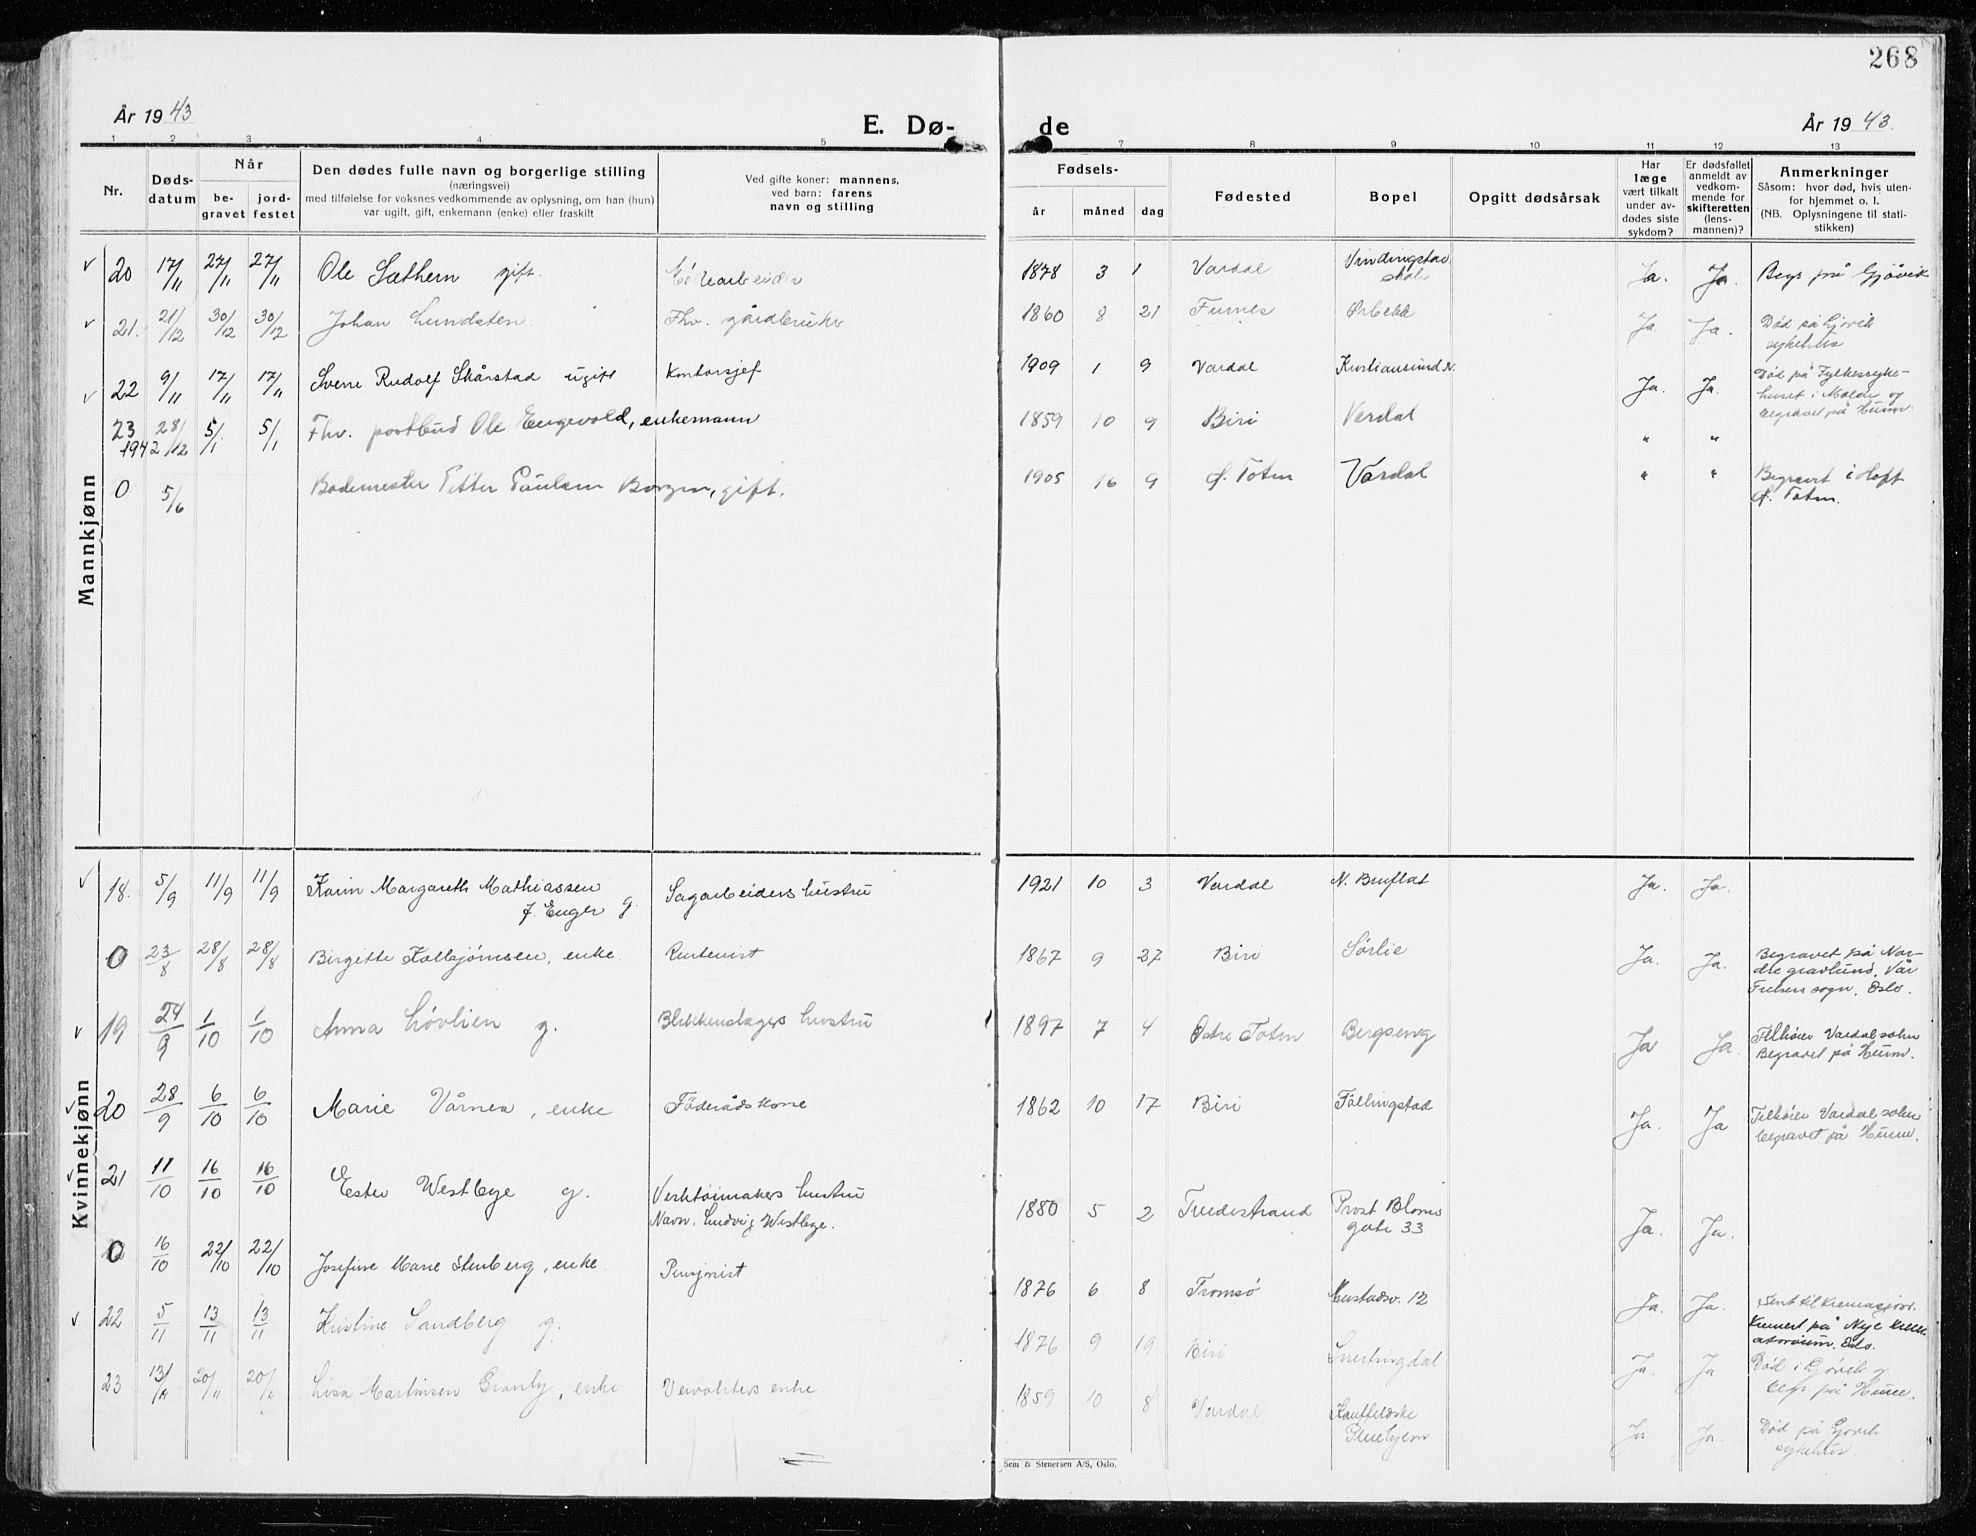 268
År 1943
E. Dø-
de
År 1943.
1 2 3 4 5 7 8 9 10 11 12 13
Nr.
Døds-
datum
Når
be-
gravet
jord-
festet
Den dødes fulle navn og borgerlige stilling
(næringsvei)
med tilføielse for voksnes vedkommende av oplysning, om han (hun)
var ugift, gift, enkemann (enke) eller fraskilt
Ved gifte koner: mannens,
ved barn: farens
navn og stilling
Fødsels-
år måned dag
Fødested
Bopel
Opgitt dødsårsak
Har
læge
vært tilkalt
under av-
dødes siste
sykdom?
Er dødsfallet
anmeldt av
vedkom-
mende for
skifteretten
(lens-
mannen)?
Anmerkninger
Såsom: hvor død, hvis uten-
for hjemmet o. l.
(NB. Oplysningene til stati-
stikken)
Mannkjønn
20 17/11 27/11 27/11 Ole Sæthern gift. 1878 3 1 Vardal Vindingstad Ja. Ja. Begr på Gjøvik
21. 21/12 30/12 30/12 Johan Lundsten. Fhv. gårdbruker 1860 8 21 Furnes Ørbekk Ja. Ja. Død på Gjøvik
sykehus
22 9/11 17/11 17/11 Sverre Rudolf Skårstad ugift Kontorsjef 1909 1 9 Vardal Kristiansund N. Ja. Ja. Død på Fylkessyke-
huset i Molde og
begravet på Hunn.
23 28/12 5/1 5/1 Fhv. postbud Ole Engevold, enkemann 1859 10 9 Biri Vardal " "
1942
0 5/6 Bademester Petter Paulsen Borgen, gift. 1905 16 9 Ø. Toten Vardal " " Begravet i Hoff
Ø. Toten.
Kvinnekjønn
18. 5/9 11/9 11/9 Karin Margareth Mathiassen Sagarbeiders hustru 1921 10 3 Vardal N. Bruflat Ja. Ja.
f. Enger g.
0 23/8 28/8 28/8 Birgitte enke. Rentenist 1867 9 27 Biri Sørlie Ja. Ja. Begravet på Nor-
dre gravlund, Vår
Frelsers sogn. Oslo.
19 29/9 1/10 1/10 Anna Løvlien g. Blikkenslagers hustru 1897 7 4 Østre Toten Bergseng Ja Ja. Tilhører Vardal sokn
Begravet på Hunn.
20 28/9 6/10 6/10 Marie Vårnes, enke Føderådskone 1862 10 17 Biri Fallingstad Ja. Ja Tilhører Vardal sokn
begravet på Hunn.
21 11/10 16/10 16/10 Ester Westbye g. Verktøimakers hustru 1880 5 2 Tvedestrand Prost Bloms Ja. Ja.
Navn. Ludvig Westbye. gate 33
0 16/10 22/10 22/10 Josefine Marie Stenberg, enke Pensjonist 1876 6 8 Tromsø Mustadsv. 12 Ja. Ja. Sent til
Kremert på Nye krem-
atorium. Oslo.
22 5/11 13/11 13/11 Kristine Sandberg g. 1876 9 19 Biri Snertingdal Ja. Ja Død i Gjøvik og
begr. på Hunn.
23 13/11 20/11 20/11 Lisa Martinsen Granly, enke enke 1859 10 8 Vardal Kauffeldske
Pleiehjem Ja Ja. Død på Gjøvik
sykehus.
Sem & Stenersen A/S, Oslo.